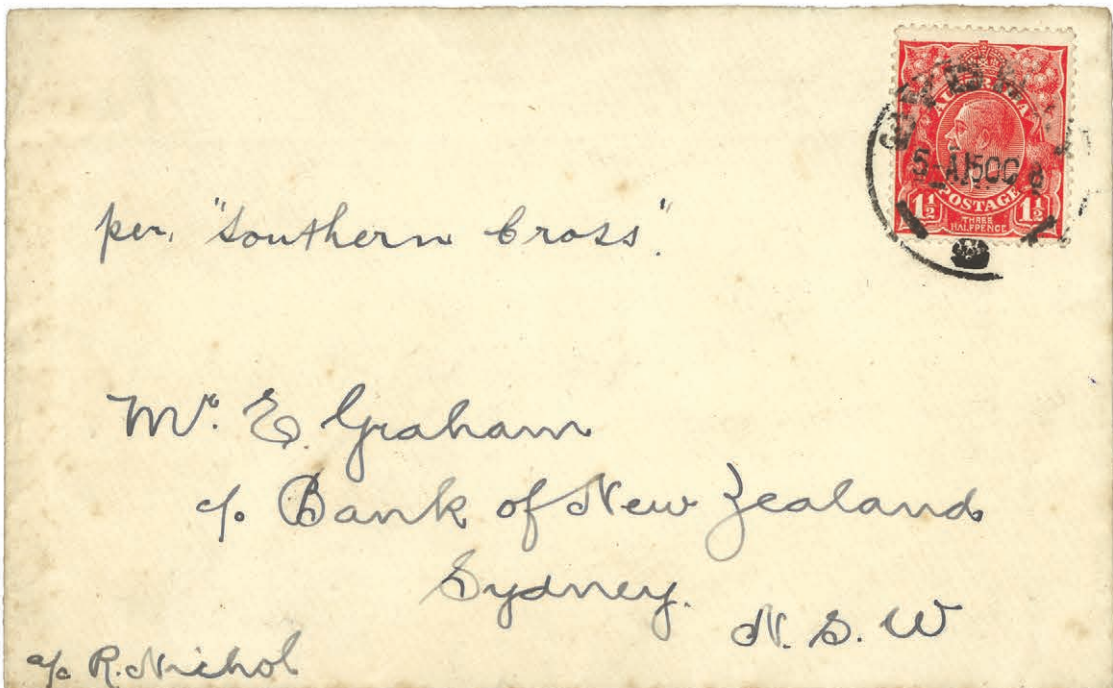 AUSTRALIA
POSTAGE
1½ THREE HALFPENCE 1½
SYDNEY
per. "Southern Cross".
Mr. E. Graham
c/o Bank of New Zealand
Sydney.
N. S. W
a/c R. Nichol